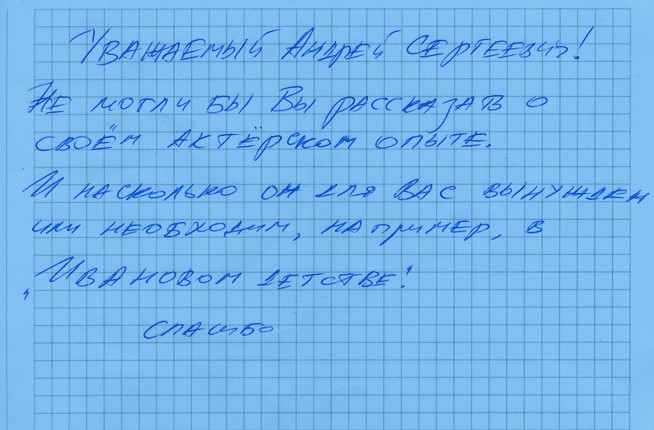 Уважаемый Андрей Сергеевич!
Не могли бы Вы рассказать о
своём актёрском опыте.
И насколько он для вас вынужден
или необходим, например, в
„Ивановом детстве".
Спасибо